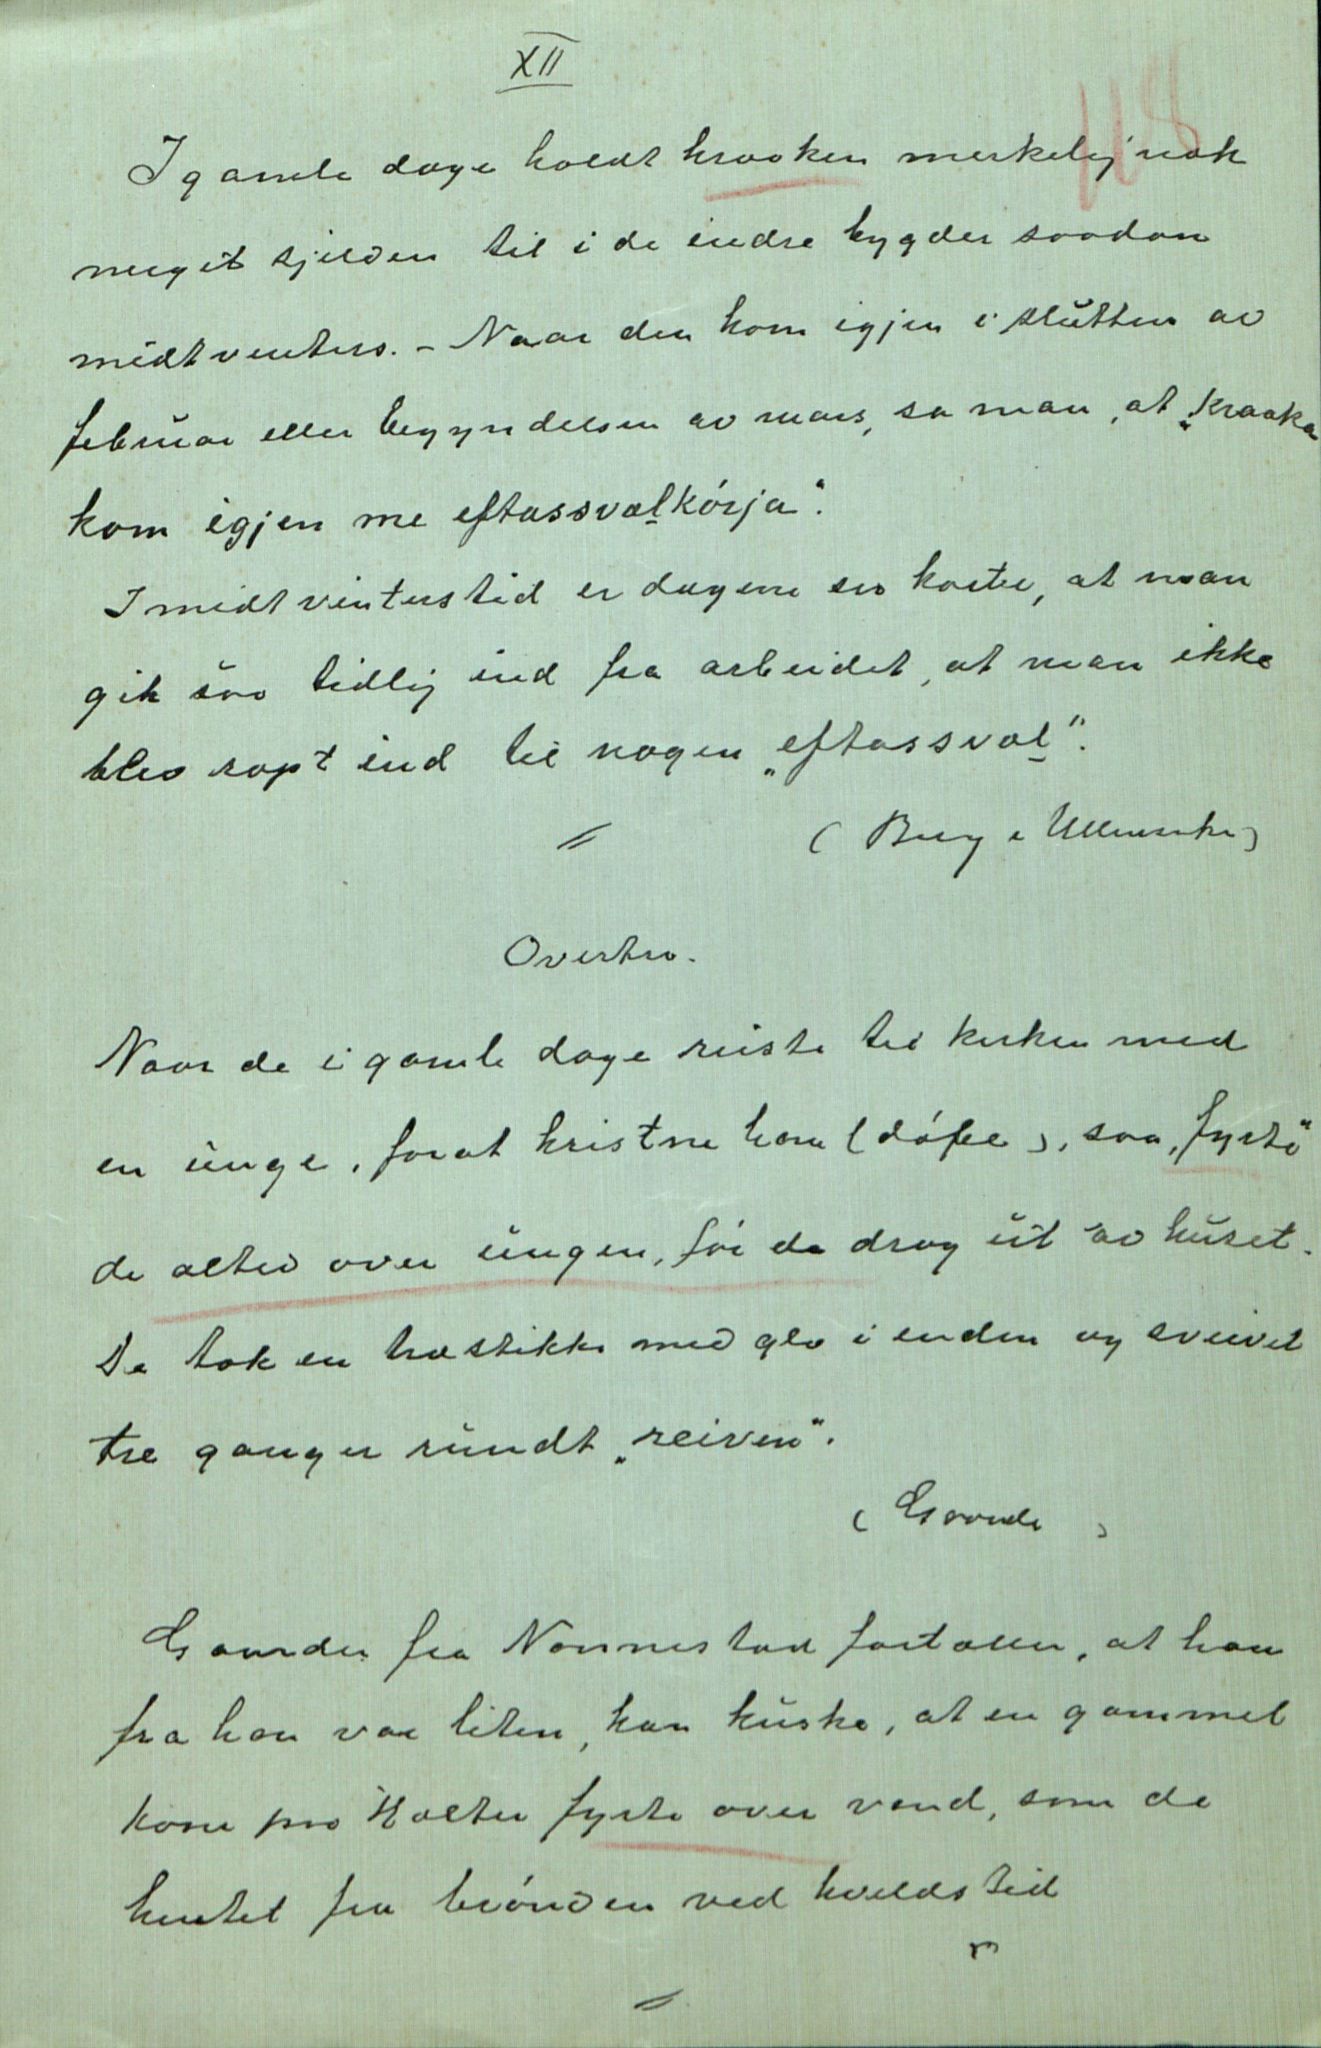 XII
118
I gamle dage holdt kraaken merkelig nok
meget sjelden til i de indre bygder saadan
midtvinters. – Naar den kom igjen i slutten av
februar eller begyndelsen av mars, sa man, at „Kraaka
kom igjen me eftassvælkórja“.
I midtvinterstid er dagene saa korte, at man
gik saa tidlig ind fra arbeidet, at man ikke
blev ropt ind til nogen „eftassvæl“.
( Berg i Ullensaker)
Overtro.
Naar de i gamle dage reiste til kirken med
en unge, forat kristne han (døpe), saa „fyrte“
de altid over ungen, før de drog ut av huset.
De tok en træstikke med glo i enden og sveivet
tre ganger rundt „reiven“.
( Gaarder )
Gaarder fra Nannestad fortæller, at han
fra han var liten, kan huske, at en gammel
kone paa Holter fyrte over vand, som de
hentet fra brønden ved kveldstid